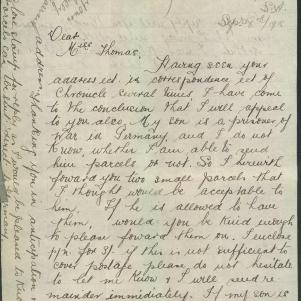 S.A.
Dear
Miss Thomas,
Having seen your
address ect. in correspondence ect of
Chronicle several times I have come
to the conclusion that I will appeal
to you also. My son is a prisoner of
War in Germany and I do not
Know, whether I am able to send
him parcels or not. So I herewith
forward you two small parcels that
I thought would be acceptable to
him, If he is allowed to have
them, would you be Kind enough
to please forward them on. I enclose
P/n. for 5/. if this is not sufficient to
cover postage please do not hesitate
to let me Know & I will send re
mainder immediately. If my son is
address thanking you in anticipation
stamp for reply. I would be pleased to Know
parcels can be sent direct to Germany